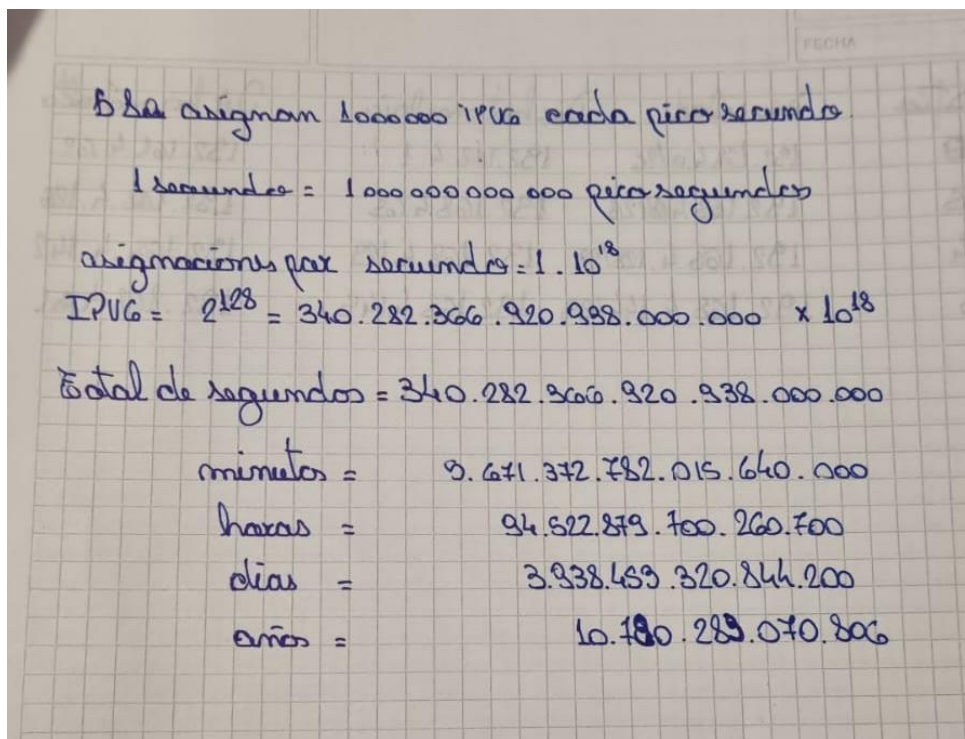 FECHA
asignan 1000000 IPV6 cada picosecundo.
1 secundo = 1 000 000 000 000 picosegundos
asignaciones par secundo = 1 . 10^18
IPV6 = 2^128 = 340.282.366.920.938.000.000 × 10^18
Total de segundos = 340.282.366.920.938.000.000
minutos = 5.671.372.782.015.640.000
haras = 94.522.879.700.260.700
dias = 3.938.453.320.844.200
años = 10.790.289.070.806